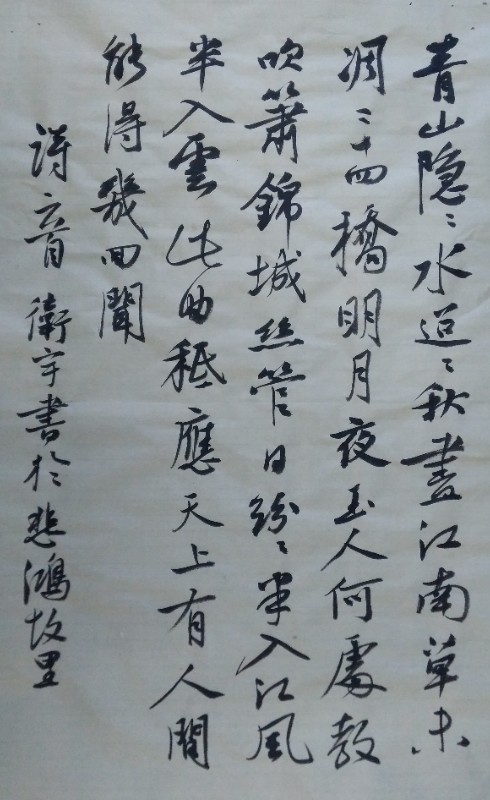 青山隐〻水迢〻秋盡江南草未
凋二十四橋明月夜玉人何處教
吹簫錦城絲管日紛〻半入江風
半入雲此曲秪應天上有人間
能得幾回聞
詩音 衛宇書於悲鴻故里